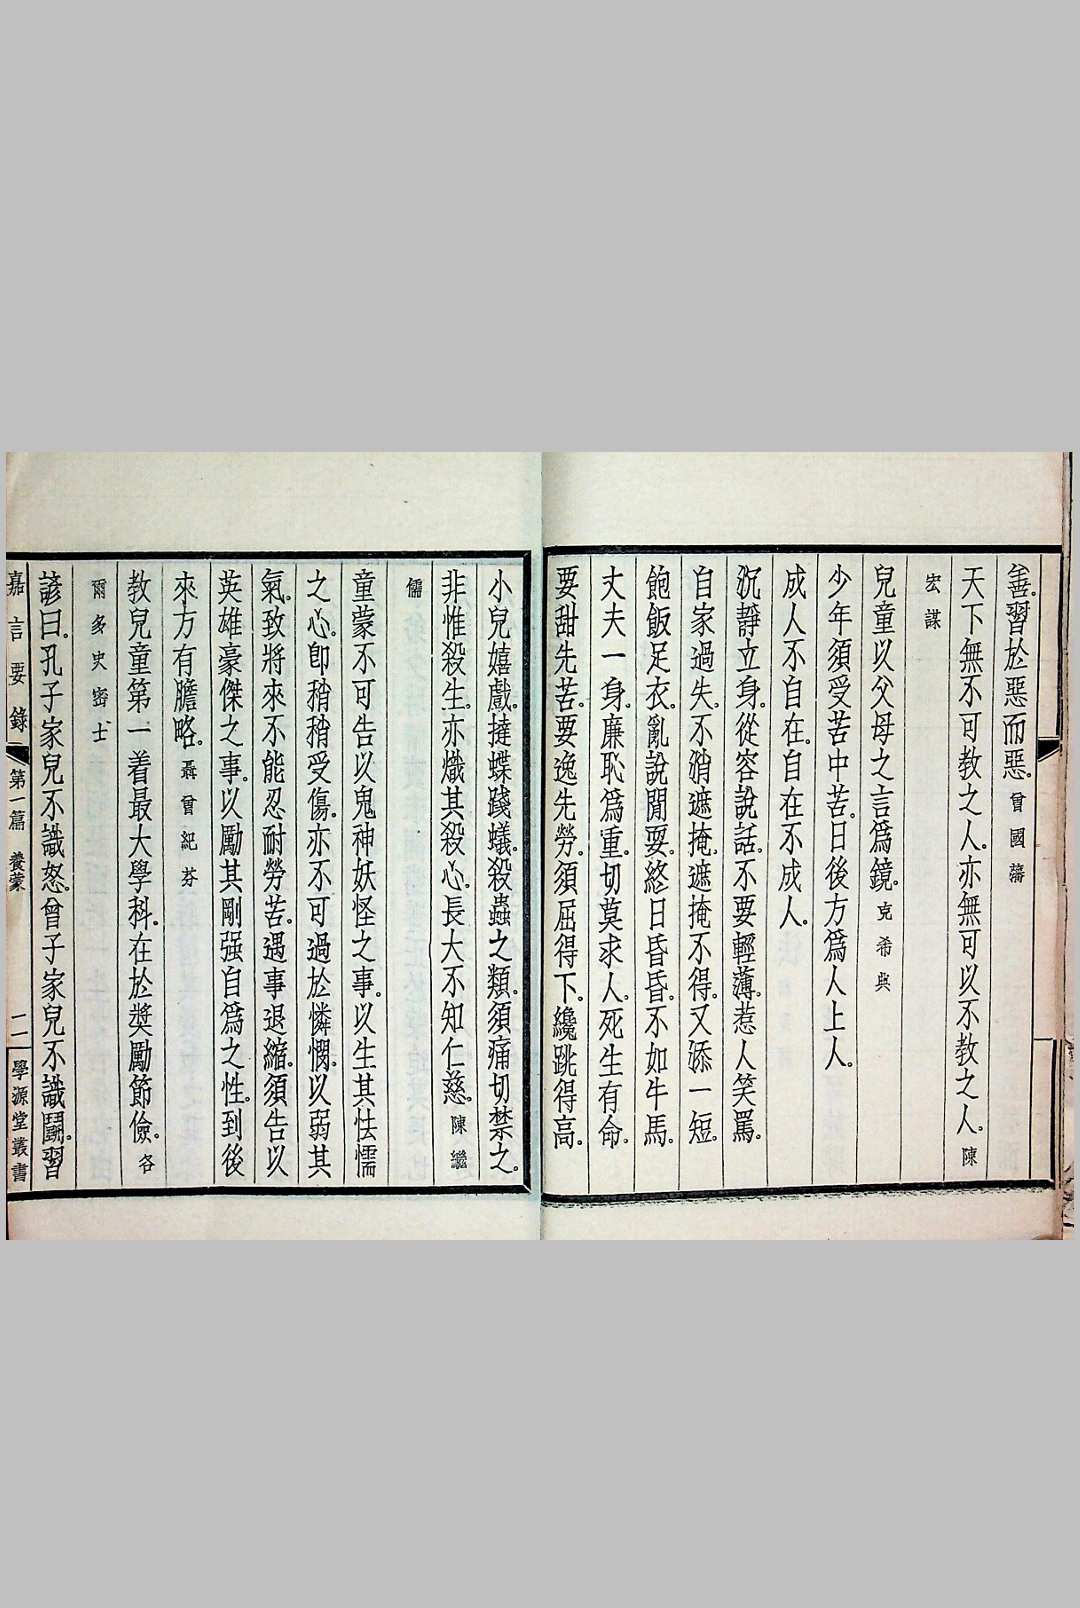 善。習於惡而惡。曾國藩
天下無不可教之人。亦無可以不教之人。陳
宏謀
兒童以父母之言爲鏡。克希典
少年須受苦中苦。日後方爲人上人。
成人不自在。自在不成人。
沉靜立身。從容說話。不要輕薄。惹人笑罵。
自家過失。不消遮掩。遮掩不得。又添一短。
飽飯足衣。亂說閒耍。終日昏昏。不如牛馬。
丈夫一身。廉恥爲重。切莫求人。死生有命。
要甜先苦。要逸先勞。須屈得下。纔跳得高。
小兒嬉戲。撻蝶踐蟻。殺蟲之類。須痛切禁之。
非惟殺生。亦熾其殺心。長大不知仁慈。陳繼
儒
童蒙不可告以鬼神妖怪之事。以生其怯懦
之心。卽稍稍受傷。亦不可過於憐憫。以弱其
氣。致將來不能忍耐勞苦。遇事退縮。須告以
英雄豪傑之事。以勵其剛强自爲之性。到後
來方有膽略。聶曾紀芬
教兒童第一着最大學科。在於奬勵節儉。各
爾多史密士
諺曰。孔子家兒不識怒。曾子家兒不識鬪。習
嘉言要錄 第一篇 養蒙 二 學源堂叢書